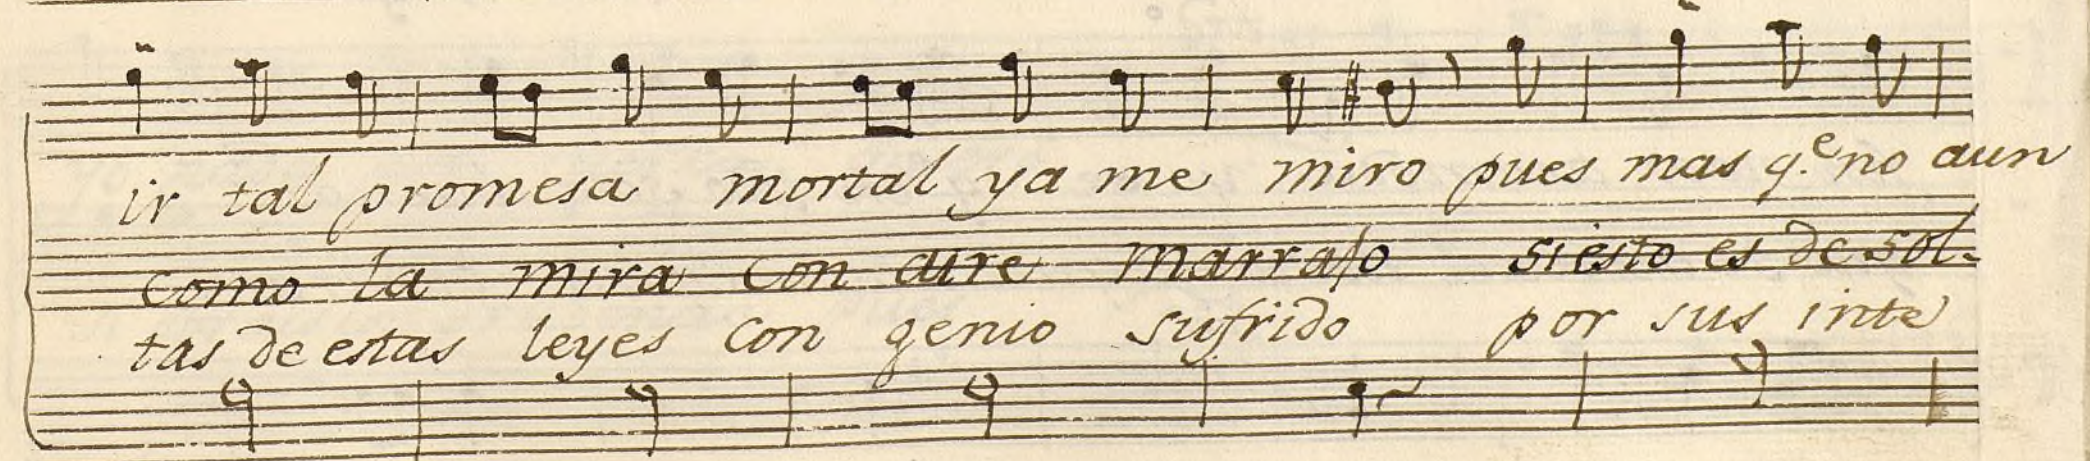 ir tal promesa mortal ya me miro pues mas q.e no aun
como la mira con aire marrajo si esto es de sol-
tas de estas leyes con genio sufrido por sus inte